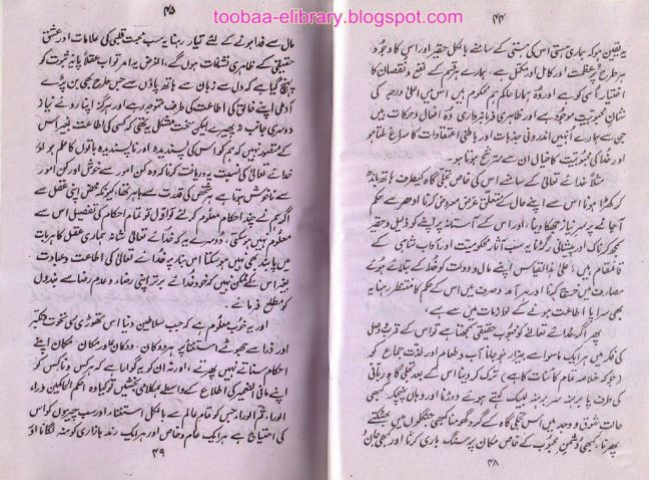 toobaa-elibrary.blogspot.com
۴۴
یہ یقین ہو کہ ہماری ہستی اس کی ہستی کے سامنے بالکل حقیر اور اس کا وجود
ہر طرح پر عظمت اور کامل اور مکمل ہے، ہمارے ہر قسم کے نفع و نقصان کا
اختیار اُسی کو ہے اور وہ ہمارا حاکم ہم محکوم ہیں اس میں اعلیٰ درجہ کی
شانِ محبوبیت موجود ہے اور ظاہری فرمانبرداری وہ افعال و حرکات ہیں
جن سے ہمارے اُنہیں اندرونی جذبات اور باطنی اعتقادات کا سراغ ملتا ہو
اور خدا کی محبوبیت کا خیال ان سے مترشح ہوتا ہو۔
مثلاً خدائے تعالیٰ کے سامنے اس کی خاص تجلی گاہ کیطرف ہاتھ باندھ
کر کھڑا ہونا اس سے اپنے حال کے متعلق عرض معروض کرنا اودھر سے حکم
آجانے پر سر نیاز جھکا دینا، اور اس کے آستانہ پر اپنے کو ذلیل و حقیر
سمجھ کر ناک اور پیشانی رگڑنا یہ سب آثار محکومیت اور آداب شاہی کے
قائمقام ہیں، علیٰ ہذا القیاس اپنے مال و دولت کو خدا کے بتلائے ہوئے
مصارف میں خرچ کرنا اور ہر آمد و صرف میں اس کے حکم کا منتظر رہنا یہ
بھی سراپا اطاعت ہونے کے لوازمات میں سے ہے،
پھر اگر خدائے تعالےٰ کو محبوب حقیقی سمجھتا ہے تو اس کے قرب و وصل
کی فکر میں ہر ایک ماسوا سے بیزار ہو جانا آب و طعام اور لذت جماع کو
(جو کہ خلاصہ تمام کائنات کا ہے) ترک کر دینا اس کے بعد تجلی گاہ ربانی
کی طرف پا برہنہ سر برہنہ لبیک کہتے ہوئے دوڑنا اور وہاں پہنچکر کبھی
حالت شوق و وجد میں اس تجلی گاہ کے گرد گھومنا کبھی جنگلوں میں بھٹکتے
پھرنا، کبھی دشمنِ محبوب کے خاص مکان پر سنگ باری کرنا اور کبھی جان و
۴۸
۴۵
مال سے فدا ہونے کے لئے تیار رہنا یہ سب محبت قلبی کی علامات اور عشق
حقیقی کے ظاہری نشانات ہوں گے، الغرض یہ امر تو اب عقلاً پایۂ ثبوت کو
پہنچ گیا ہے کہ دل سے زبان سے ہاتھ پاؤں سے جس طرح بھی بن پڑے
آدمی اپنے خالق کی اطاعت کی طرف متوجہ رہے اور ہرگز اپنا روئے نیاز
دوسری جانب نہ پھیرے لیکن سخت مشکل یہ تھی کہ کسی کی اطاعت بغیر اس
کے متصور نہیں کہ ہم کو اس کی پسندیدہ اور ناپسندیدہ باتوں کا علم ہو اور
خدائے تعالیٰ کی نسبت یہ دریافت کرنا کہ وہ کن امور سے خوش اور کن امور
سے ناخوش ہوتا ہے ہر شخص کی قدرت سے باہر تھا، کیونکہ محض اپنی عقل سے
اگر ہم نے چند احکام معلوم کر لئے تو اول تو تمام احکام کی تفصیل اس سے
معلوم نہیں ہو سکتی، دوسرے یہ کہ خدائے تعالیٰ شانہ ہماری عقل کا ہر بات
میں پابند بھی نہیں ہو سکتا اس بنا پر خدائے تعالیٰ کی اطاعت و عبادت
بغیر اس کے ممکن نہیں کہ خود خدائے برتر اپنی رضا و عدم رضا سے بندوں
کو مطلع فرمائے۔
اور یہ خوب معلوم ہے کہ جب سلاطین دنیا اس تھوڑی سی نخوت و تکبر
اور ذرا سے جھوٹے استغنا پر ہر دوکان دوکان اور مکان مکان اپنے
احکام سناتے نہیں پھرتے، اور نہ ان کو یہ گوارا ہے کہ ہر کس و ناکس کو
اپنے مافی الضمیر کی اطلاع کے واسطے ہمکلامی بخشیں تو کیا وہ احکم الحاکمین وراء
الوراء ثم الوراء جس کو تمام عالم سے بالکل استغناء اور سب چیزوں کو اس
کی احتیاج ہے ہر ایک عام و خاص اور ہر ایک رند بازاری کو منہ لگانا اور
۴۹